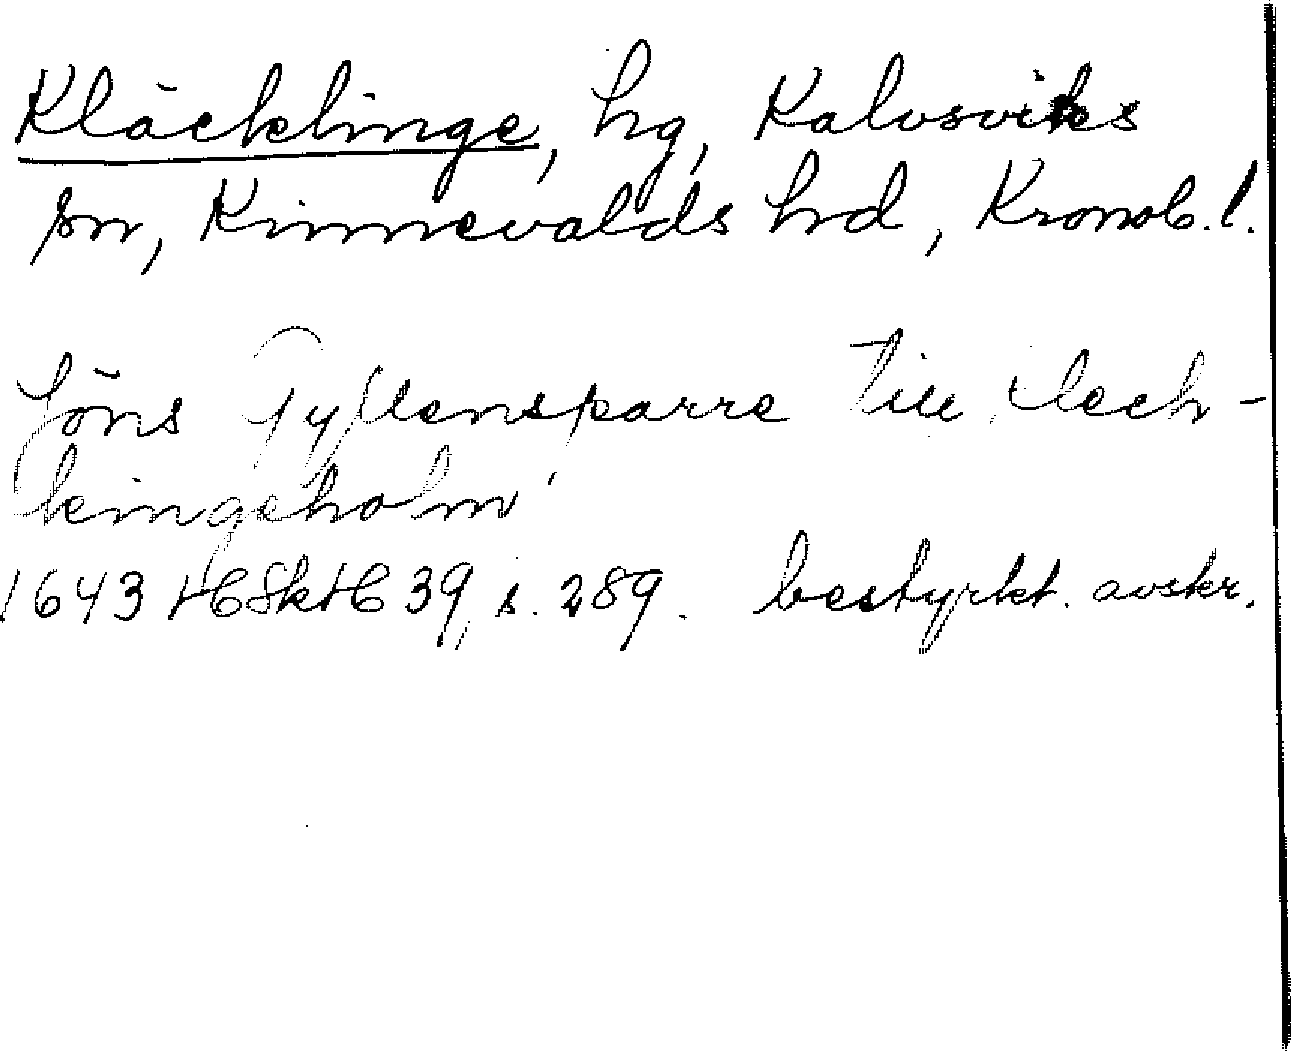 Kläcklinge, hg, Kalvsviks
sn, Kinnevalds hrd, Kronob. l.
Jöns Gyllensparre till Klech-
lingeholm
1643 HSkH 39, s. 289. bestyrkt. avskr.